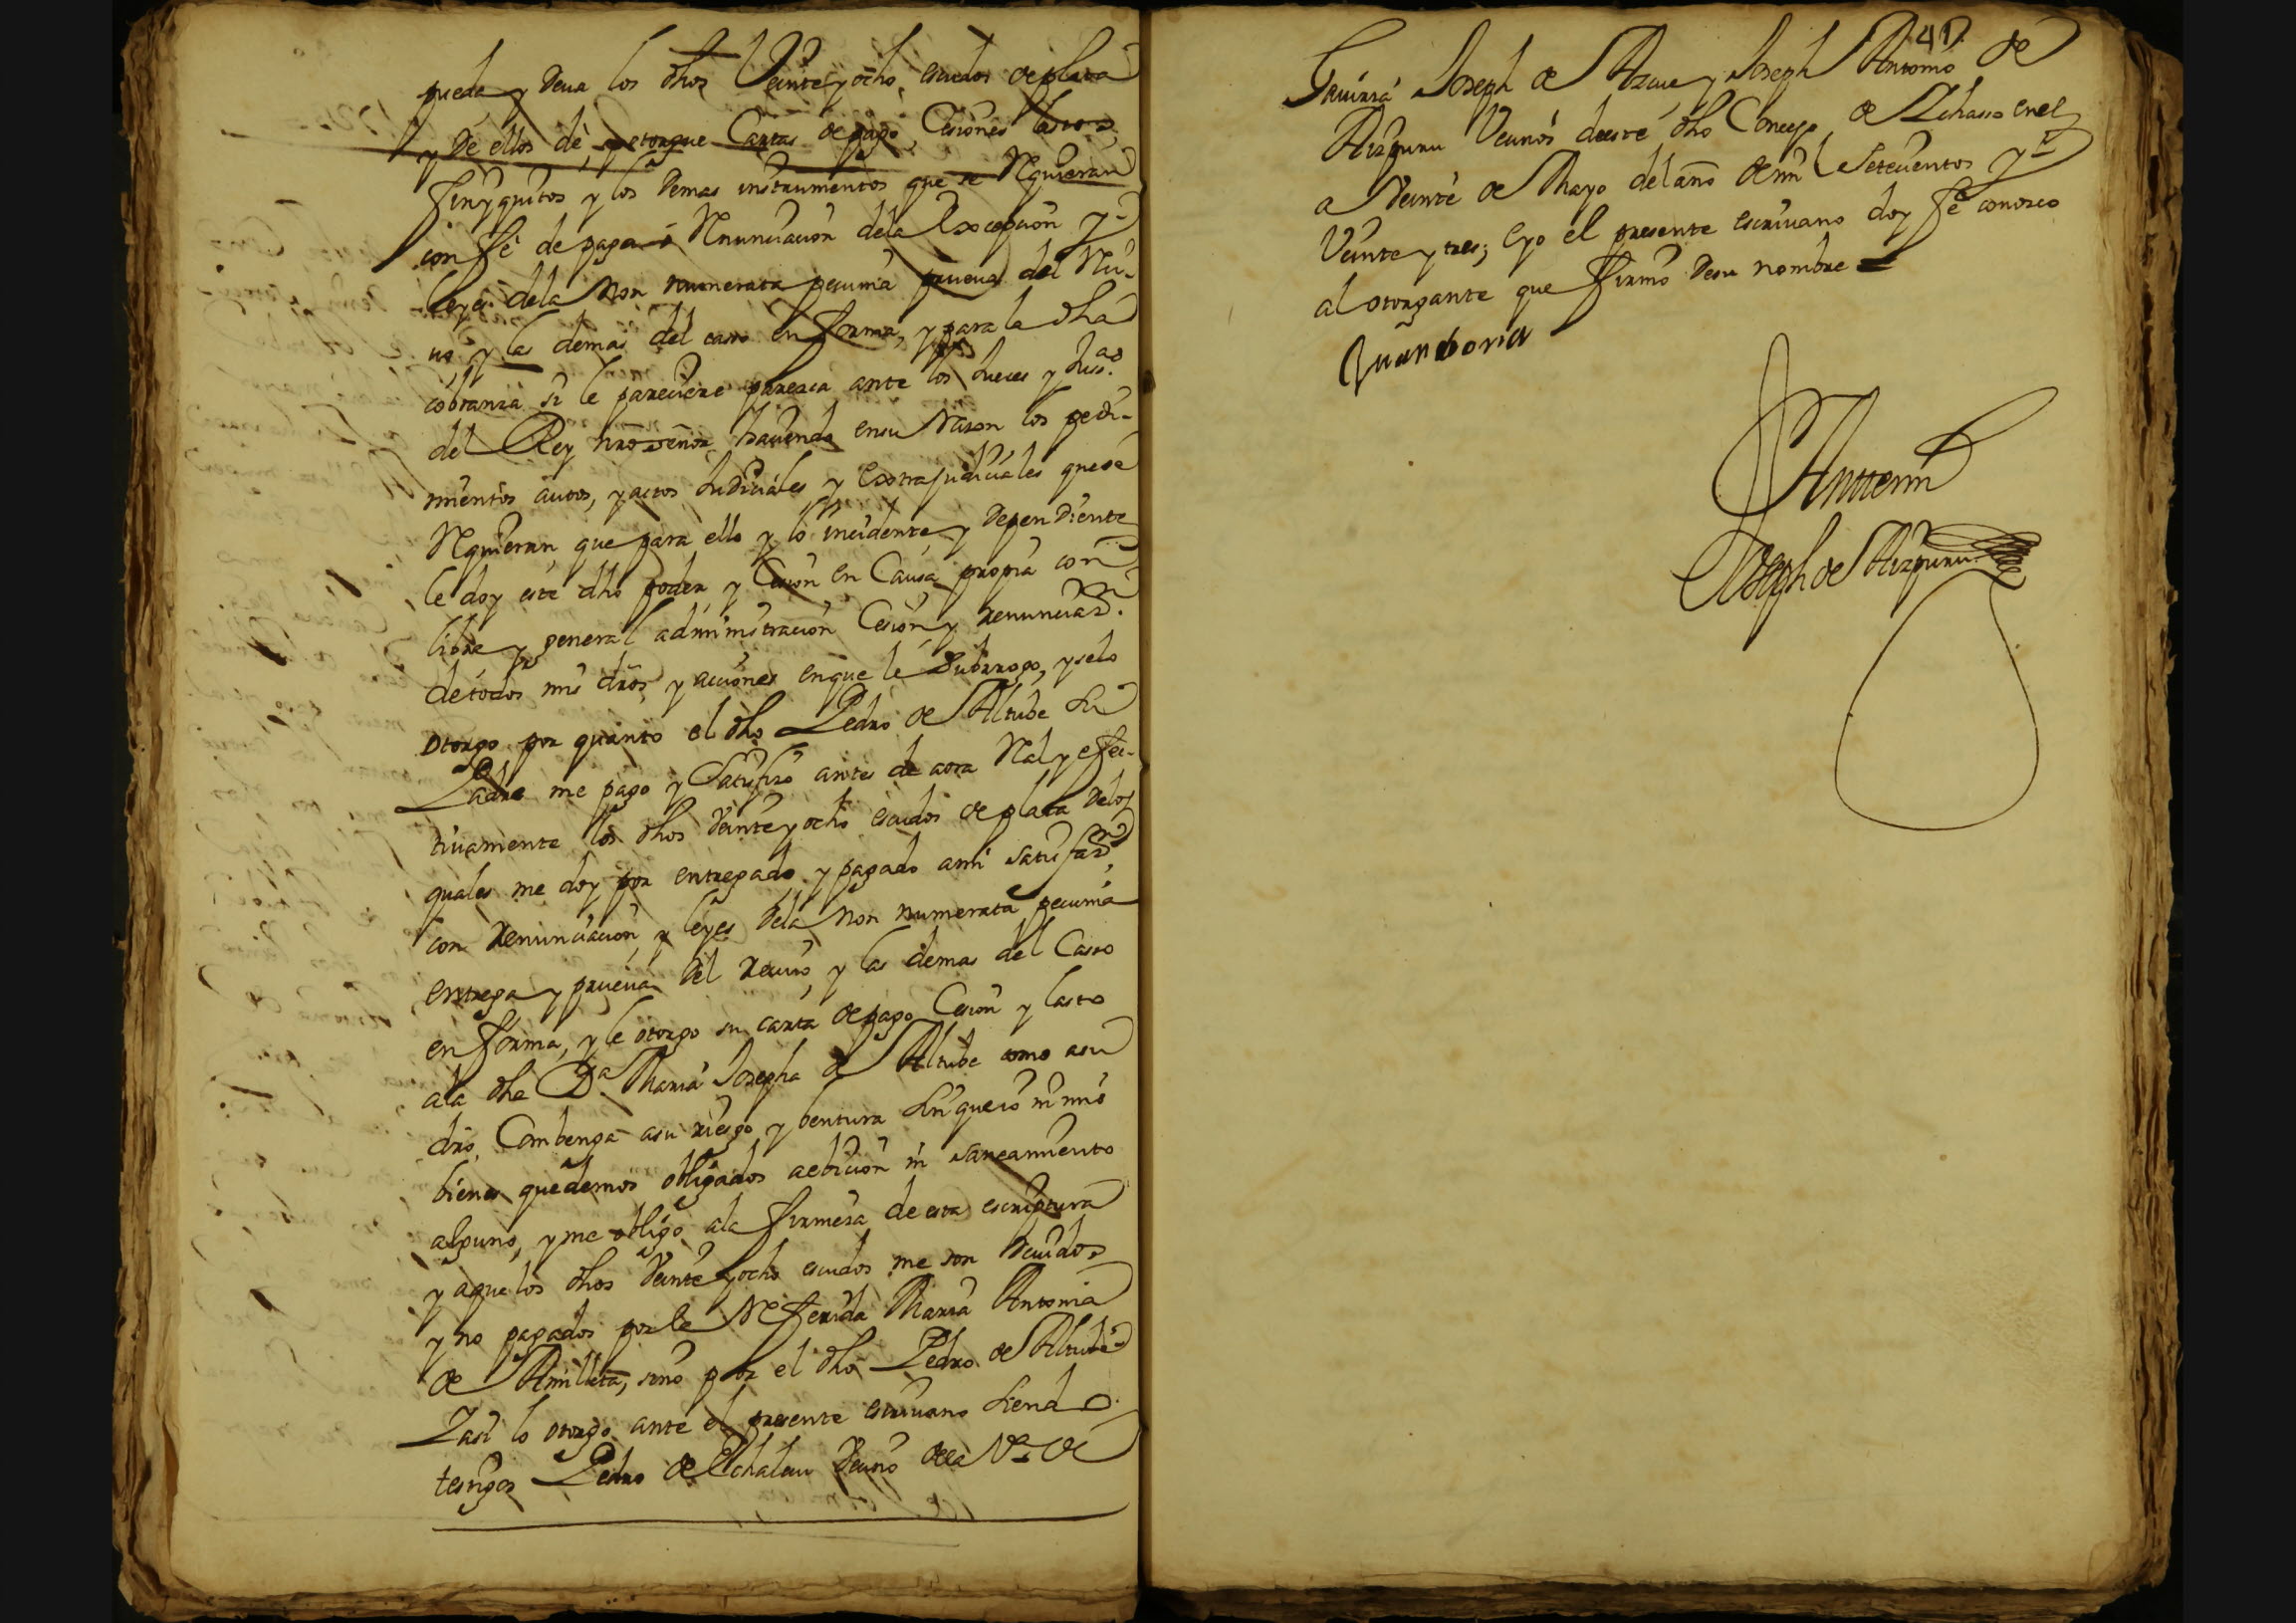 pueda y deua los dhos Veinte y ocho escudos de plata
y de ellos dè, y otorgue Cartas de pago, Cesiones lastos
finyquitos y los demas instrumentos que se Rquieran
con fè de paga ò Rnunciacion dela Excepcion y
leyes dela non numerata pecunia prueua del Rci-
uo, y las demas del casso en forma, y para la dha
cobranza si le pareciere paresca ante los Jueces y Juss.as
del Rey nro señor haciendo en su Razon los pedi-
mientos autos, y actos Judiciales y Extrajudiciales que se
Rquieran que para ello y lo incidente y dependiente
le doy este dho poder y Cesion en Causa propia con
libre y general administracion Cesion y renunciaz.n
de todos mis dros y acciones en que le Subrrogo, y selo
otorgo por quanto el dho Pedro de Altube Su
Padre me pago y Satisfizo antes de aora Ral y efec-
tiuamente los dhos Veinte y ocho escudos de plata delos
quales me doy por entregado y pagado a mi satisfaz.n
con renunciacion y leyes dela non numerata pecunia
entrega y prueua del reciuo, y las demas del Casso
en forma, y le otorgo su carta de pago Cesion y lasto
ala dha D.a Maria Josepha de Altube como a su
dro Combenga a su riesgo y bentura Sin que io ni mis
bienes quedemos obligados a ebicion ni saneamiento
alguno, y me obligo ala firmeza de esta escriptura
y a que los dhos Veinte y ocho escudos me son deuidos
y no pagados por la Rferida Maria Antonia
de Amilleta, sino por el dho Pedro de Altube
Y asi lo otorgo ante el presente escriuano Siendo
testigos Pedro de Echaleku Vecino dela V.a de
41
Gauiria Joseph de Azcue y Joseph Antonio de
Aizpuru Vecinos de este dho Concejo de Ichasso en el
a Veinte de Mayo del año de mil Setecientos y
Veinte y tres; e yo el presente escriuano doy fè conosco
al otorgante que firmò de su nombre
Juan boria
Antte mi
Joseph de Aizpuru